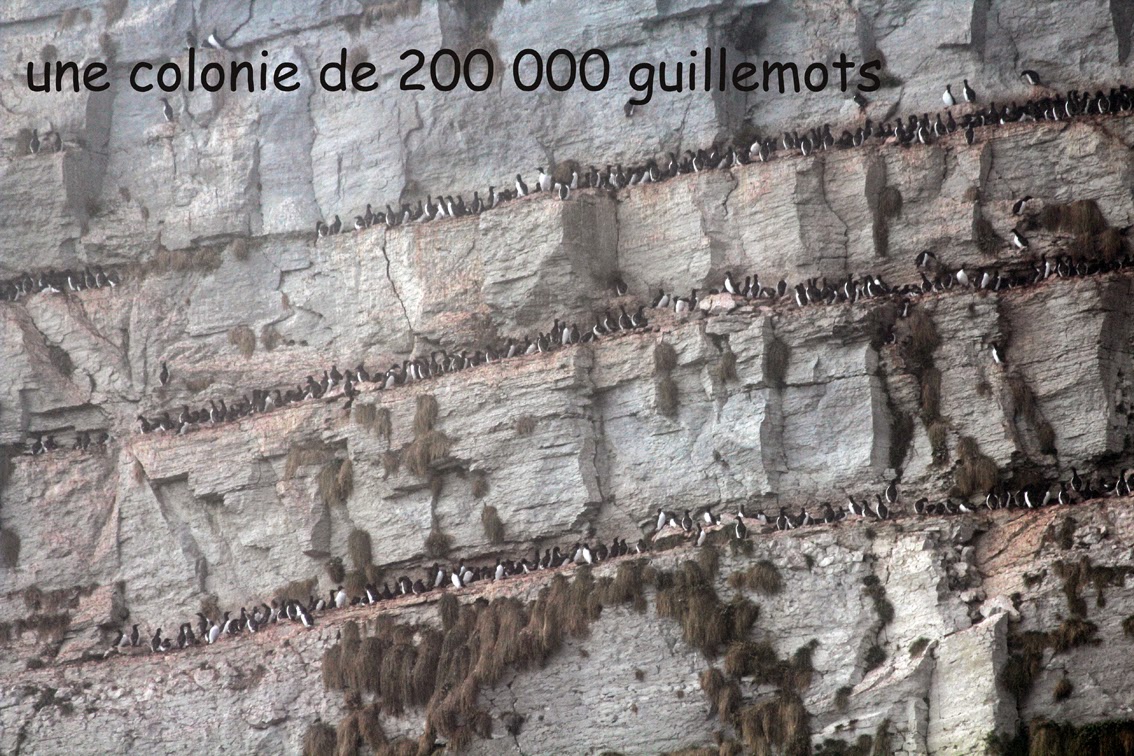 une colonie de 200 000 guillemots